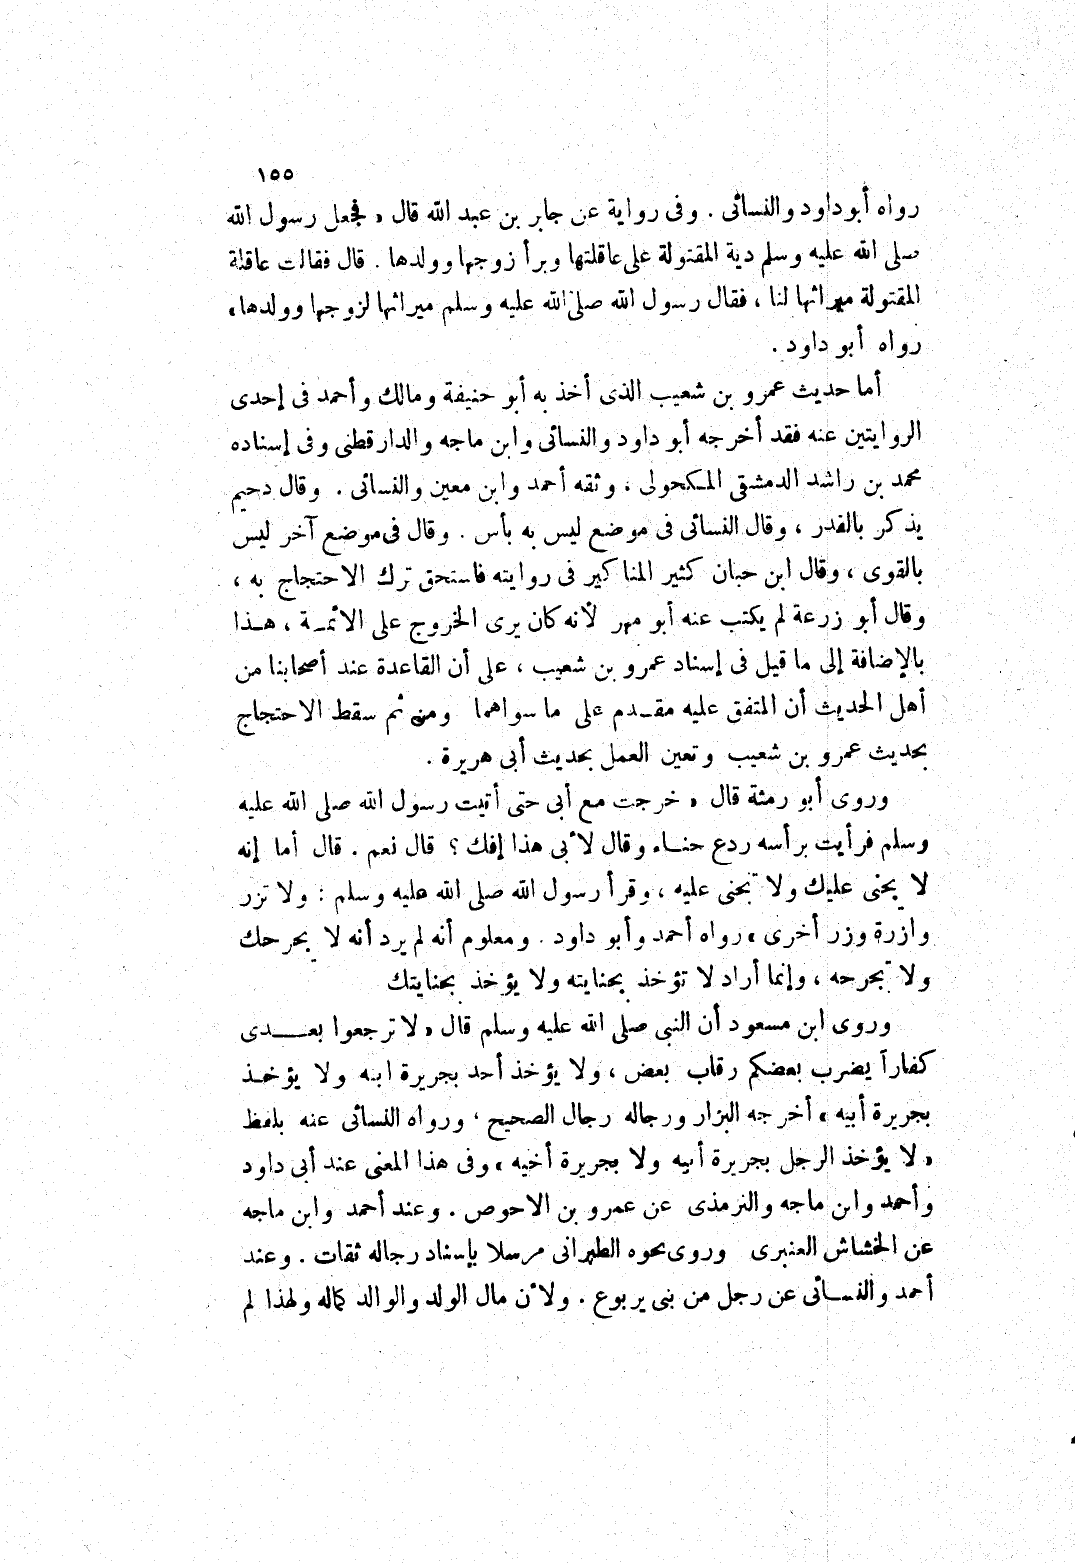 ١٥٥
رواه أبو داود والنسائى . وفى رواية عن جابر بن عبد الله قال « فجعل رسول الله
صلى الله عليه وسلم دية المقتولة على عاقلتها وبرأ زوجها وولدها . قال فقالت عاقلة
المقتولة ميراثها لنا ، فقال رسول الله صلى الله عليه وسلم ميراثها لزوجها وولدها »
رواه أبو داود .
أما حديث عمرو بن شعيب الذى أخذ به أبو حنيفة ومالك وأحمد فى إحدى
الروايتين عنه فقد أخرجه أبو داود والنسائى وابن ماجه والدارقطنى وفى إسناده
محمد بن راشد الدمشقى المكحولى ، وثقه أحمد وابن معين والنسائى . وقال دحيم
يذكر بالقدر ، وقال النسائى فى موضع ليس به بأس . وقال فى موضع آخر ليس
بالقوى ، وقال ابن حبان كثير المناكير فى روايته فاستحق ترك الاحتجاج به ،
وقال أبو زرعة لم يكتب عنه أبو مهر لأنه كان يرى الخروج على الائمة ، هذا
بالإضافة إلى ما قيل فى إسناد عمرو بن شعيب ، على أن القاعدة عند أصحابنا من
أهل الحديث أن المتفق عليه مقدم على ما سواهما ومن ثم سقط الاحتجاج
بحديث عمرو بن شعيب وتعين العمل بحديث أبى هريرة .
وروى أبو رمثة قال « خرجت مع أبى حتى أتيت رسول الله صلى الله عليه
وسلم فرأيت برأسه ردع حناء وقال لأبى هذا إفك ؟ قال نعم . قال أما إنه
لا يجنى عليك ولا تجنى عليه ، وقرأ رسول الله صلى الله عليه وسلم : ولا تزر
وازرة وزر أخرى » رواه أحمد وأبو داود . ومعلوم أنه لم يرد أنه لا يجرحك
ولا تجرحه ، وإنما أراد لا تؤخذ بجنايته ولا يؤخذ بجنايتك
وروى ابن مسعود أن النبى صلى الله عليه وسلم قال « لا ترجعوا بعدى
كفاراً يضرب بعضكم رقاب بعض ، ولا يؤخذ أحد بجريرة ابنه ولا يؤخذ
بجريرة أبيه » أخرجه البزار ورجاله رجال الصحيح ، ورواه النسائى عنه بلفظ
« لا يؤخذ الرجل بجريرة أبيه ولا بجريرة أخيه » وفى هذا المعنى عند أبى داود
وأحمد وابن ماجه والترمذى عن عمرو بن الاحوص . وعند أحمد وابن ماجه
عن الخشاش العنبرى وروى نحوه الطبرانى مرسلا بإسناد رجاله ثقات . وعند
أحمد والنسائى عن رجل من بنى يربوع . ولأن مال الولد والوالد كماله ولهذا لم